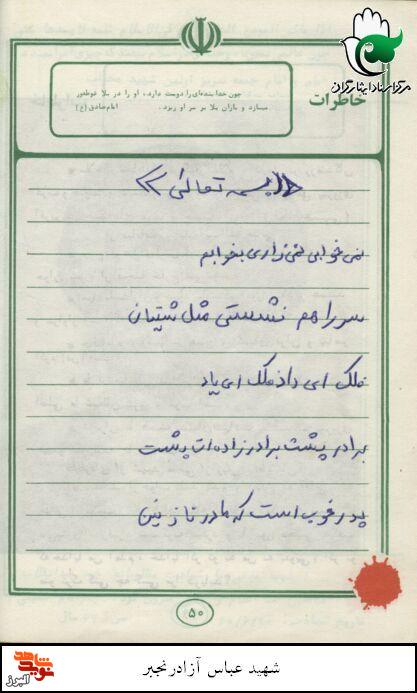 مرکز اسناد ایثارگران
خاطرات
چون خدا بنده‌ای را دوست دارد، او را در بلا غوطه‌ور
میسازد و باران بلا بر سر او ریزد. امام صادق (ع)
«بسمه تعالی»
نمی خوابی نمی زاری بخوابم
سر راهم نشستی مثل شیتان
فلک ای داد فلک ای یاد
برادر پشت برادر زاده ات پشت
پدر خوب است که مادر نازنین
۵۰
نوید شاهد
البرز
شهید عباس آزادرنجبر